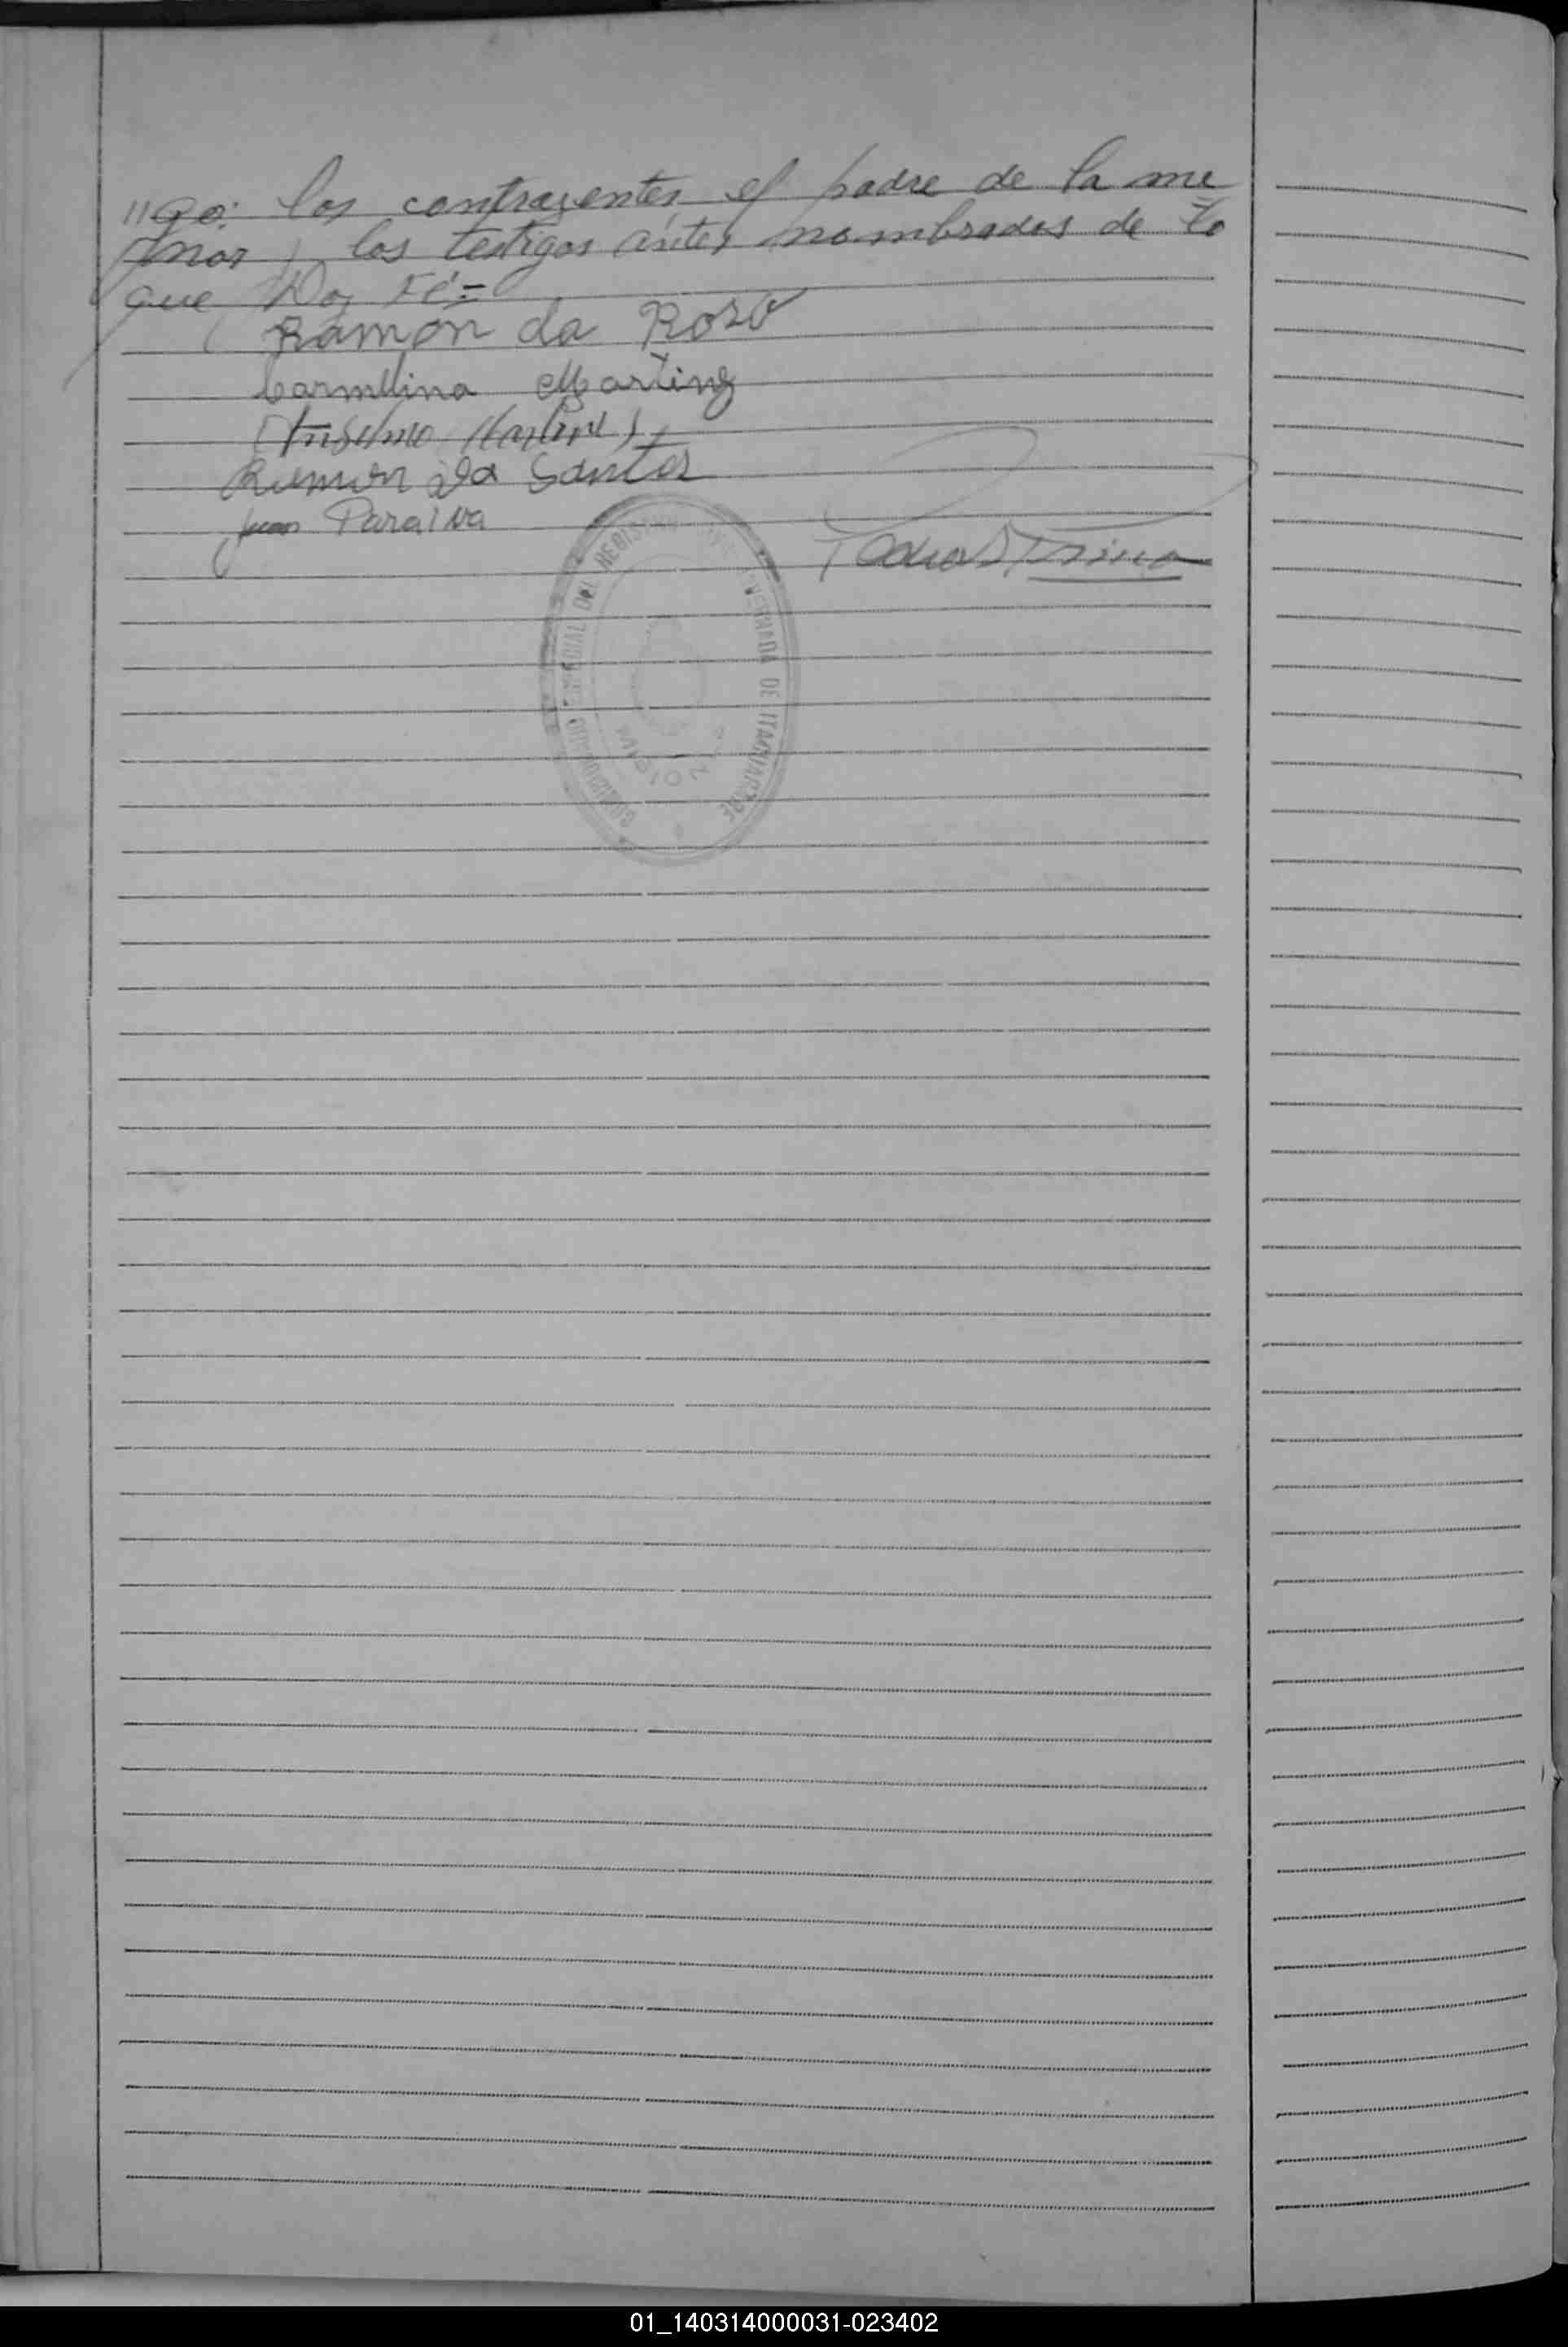 "go: los contrayentes, el padre de la me
nor y los testigos antes nombrados de lo
que Doy Fé=
Ramon da Rosa
Carmelina Martinez
Anselmo Martinez
Ramon da Santos
Juan Paraiva
DEL REGISTRO
DE ITACUARARE
MISIONES
01_140314000031-023402